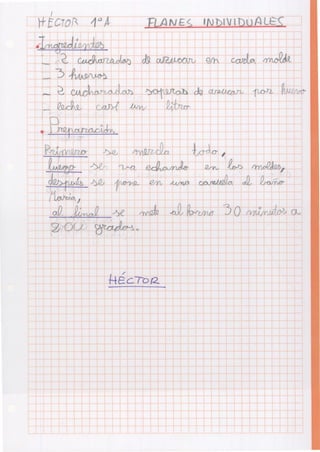 HÉCTOR 1ºA FLANES INDIVIDUALES
• Ingredientes
— 2 cucharadas de azucar en cada molde
— 3 huevos
— 2 cucharadas soperas de azucar por huevo
— leche casi un litro
• Preparación
Primero se mezcla todo,
luego se va echando en los moldes,
después se pone en una cazuela al baño
María,
al final se mete al horno 30 minutos a
200 grados.
HÉCTOR